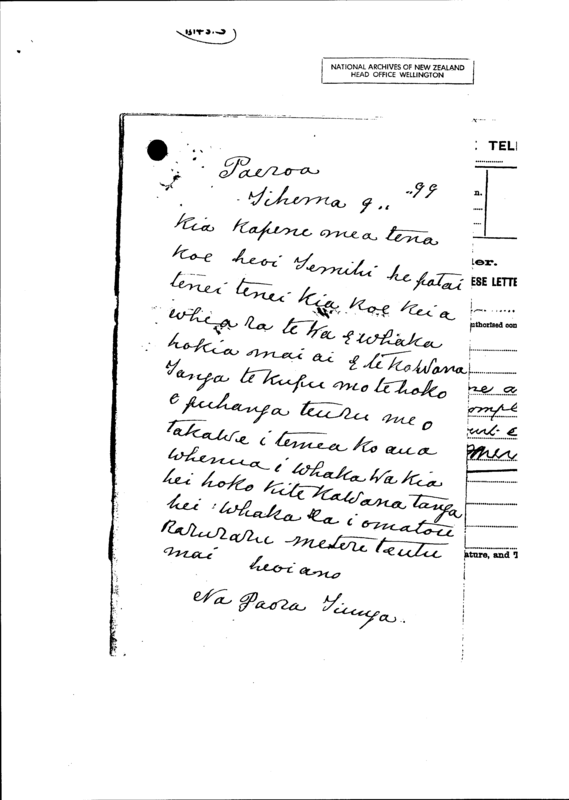 B143.5
NATIONAL ARCHIVES OF NEW ZEALAND
HEAD OFFICE WELLINGTON
Paeroa
Tihema 9.. ..99
Kia Kapene mea tena
koe heoi Temihi he patai
tenei tenei kia koe kei a
whea ra te Wa e whiaka
hokia mai ai e te Kowana
Tanga te Kupu mo te hoko
e puhanga teuru me o
takawe i temea Ko aua
whenua i whaka Wa Kia
hei hoko Kite Kawana tanga
hei whaka Ea i o matou
Raruraru me tere tautu
mai heoi ano
Na Paora Tiunga.
: TEL
n.
er.
ESE LETTE
uthorised con
ne a
ompl
mer
ature, and T